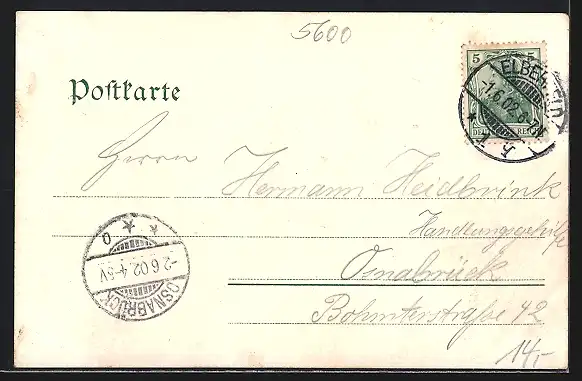 5600
Postkarte
5 5
DEUTSCHES REICH
ELBERFELD
-1.6.02.6-7N
* h *
Herrn
Hermann Heidbrink
Handlungsgehilfe
Osnabrück
Bohmterstraße 42
14,-
OSNABRÜCK
-2.6.02.4-5V
* * o